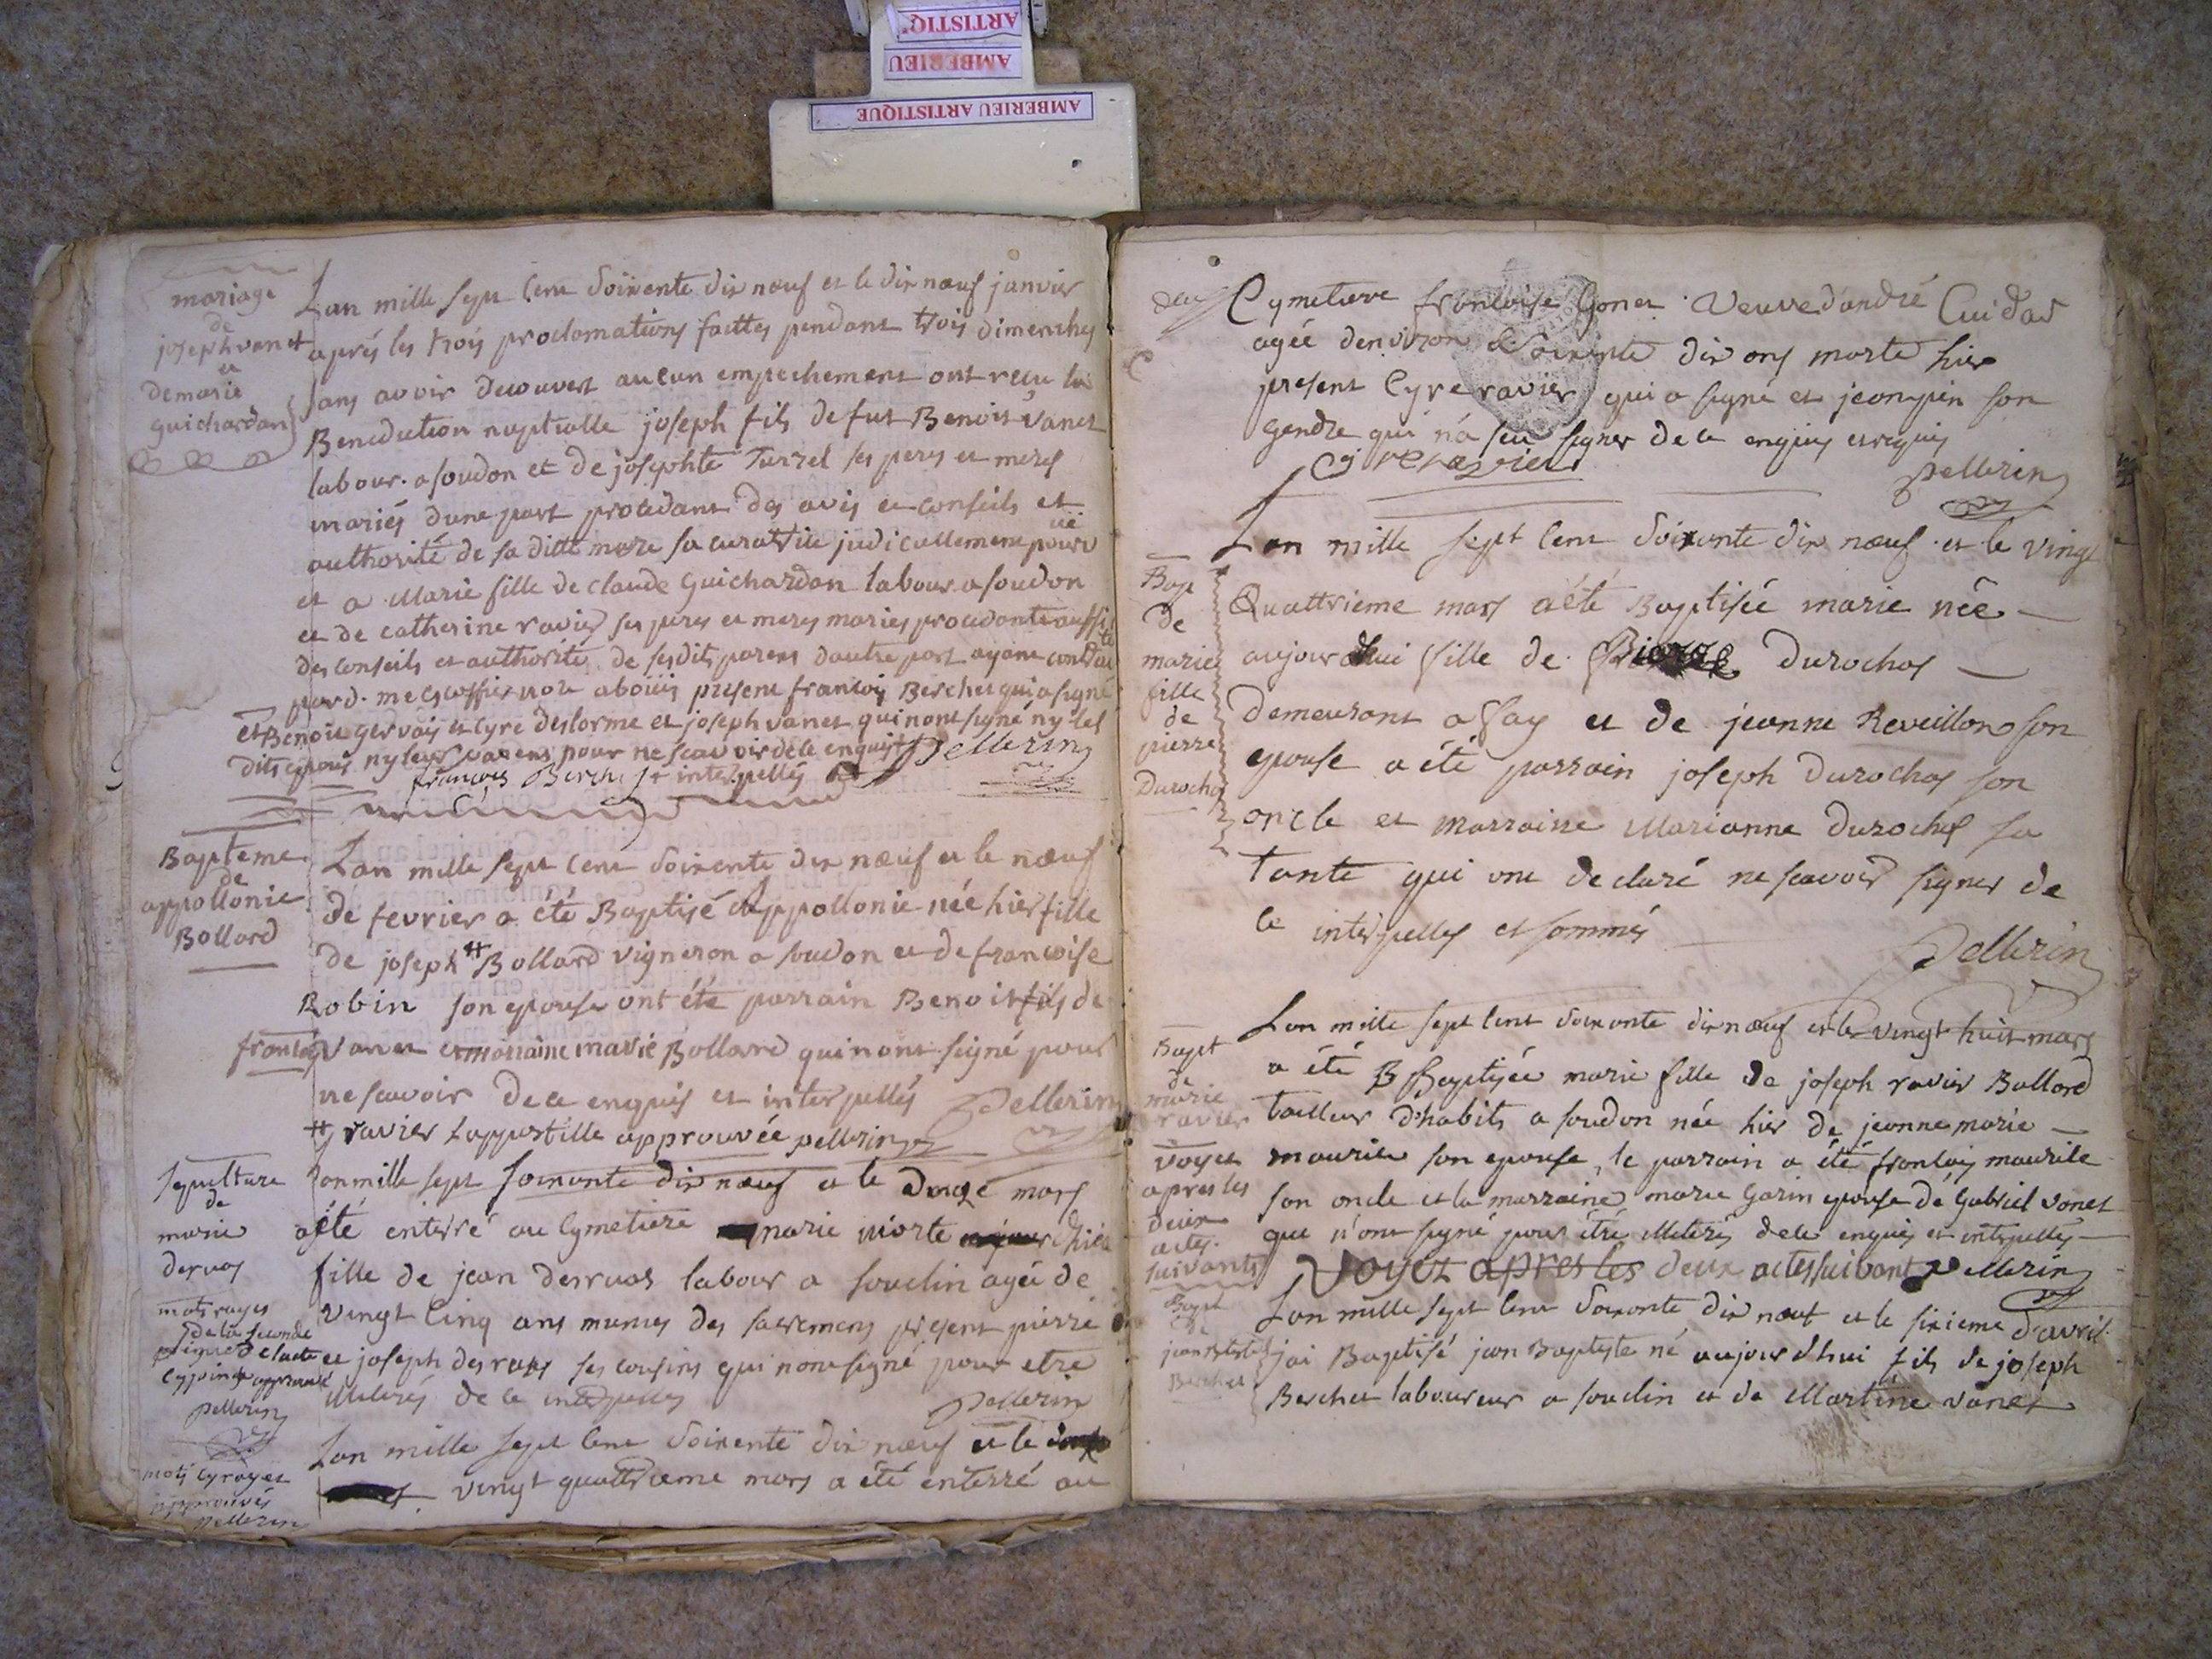 ARTISTIQ'
AMBERIEU
AMBERIEU ARTISTIQUE
mariage
de
joseph vanet
et
de marie
guichardan
Lan mille sept cent soixente dix nœuf et le dix nœuf janvier
aprés les trois proclamations faittes pendant trois dimenches
sans avoir decouvert aucun empechement ont reçu la
Benediction nuptialle joseph fils de fut Benoit vanet
labour. a soudon et de josephte Turrel ses peres et meres
mariés dune part procedant des avis et conseils et
authorité de sa ditte mere sa curatrice judiciallement pourvuë
et a Marie fille de claude Guichardan labour a soudon
et de catherine ravier ses peres et meres mariés procedante aussi
des conseils et authorité de sesdits parens dautre part ayant contracté
pard. me escoffier notre abouis present francois Berchet qui a signé
et Benoit gervais et Cyre deslorme et joseph vanet qui nont signé ny les
dits epoux ny leurs parens pour ne scavoir de ce enquis Pellerin
françois Berchet + interpellés
Bapteme
de
appollonie
Bollard
Lan mille sept cent soixente dix nœuf et le nœuf
de fevrier a été Baptisé Appollonie née hier fille
de joseph # Bollard vigneron a soudon et de francoise
Robin son epouse ont été parrain Benoit fils de
francois vanet et marraine marie Bollard qui nont signé pour
ne scavoir de ce enquis et interpellés Pellerin
# ravier lappostille approuvée pellerin
sepulture
de
marie
dervas
Lan mille sept soixante dix nœuf et le douze mars
a été enterré au Cymetiere marie morte hier
fille de jean derruas labour a souclin agée de
vingt cinq ans munies des sacremens present pierre
et joseph desruas ses cousins qui nont signé pour etre
illiterés de ce interpellés Pellerin
mots rayés
de la seconde
ligne de lacte
cy joint approuvé
pellerin
Lan mille sept cent soixente dix nœuf et le
vingt quattrieme mars a été enterré au
mots cy rayés
approuvés
pellerin
Cymetiere francoise Gonet veuve d'andré Cuidar
agée denviron Soixente dix ans morte hier
present Cyre ravier qui a signé et jean pin son
gendre qui n'a seu signer de ce enquis et requis
Cyre ravier
pellerin
Bapt
de
marie
fille
de
pierre
Durochas
Lan mille sept cent Soixante dix nœuf et le vingt
Quattrieme mars a été Baptisée marie née
aujourdhui fille de Pierre durochas
demeurant a fay et de jeanne Reveillon son
epouse a été parrain joseph durochas son
oncle et marraine Marianne durochas sa
tante qui ont declaré ne scavoir signer de
ce interpelles et sommés
Pellerin
Bapt
de
marie
ravier
voyez
apres les
deux
actes
suivants
Lan mille sept cent soixante dix nœuf et le vingt huit mars
a été B Baptisée marie fille de joseph ravier Bollard
tailleur d'habits a soudon née hier de jeanne marie
maurier son epouse, le parrain a été francois maurile
son oncle et la marraine marie Garin epouse de Gabriel vanet
que n'ont signé pour étre illiterés de ce enquis et interpellés
Voyez apres les deux actes suivant Pellerin
Bapt
de
jean Batiste
Berchet
Lan mille sept cent Soixante dix nœuf et le sixieme d'avril
jai Baptisé jean Baptiste né aujourdhui fils de joseph
Berchet laboureur a souclin et de Martine vanet